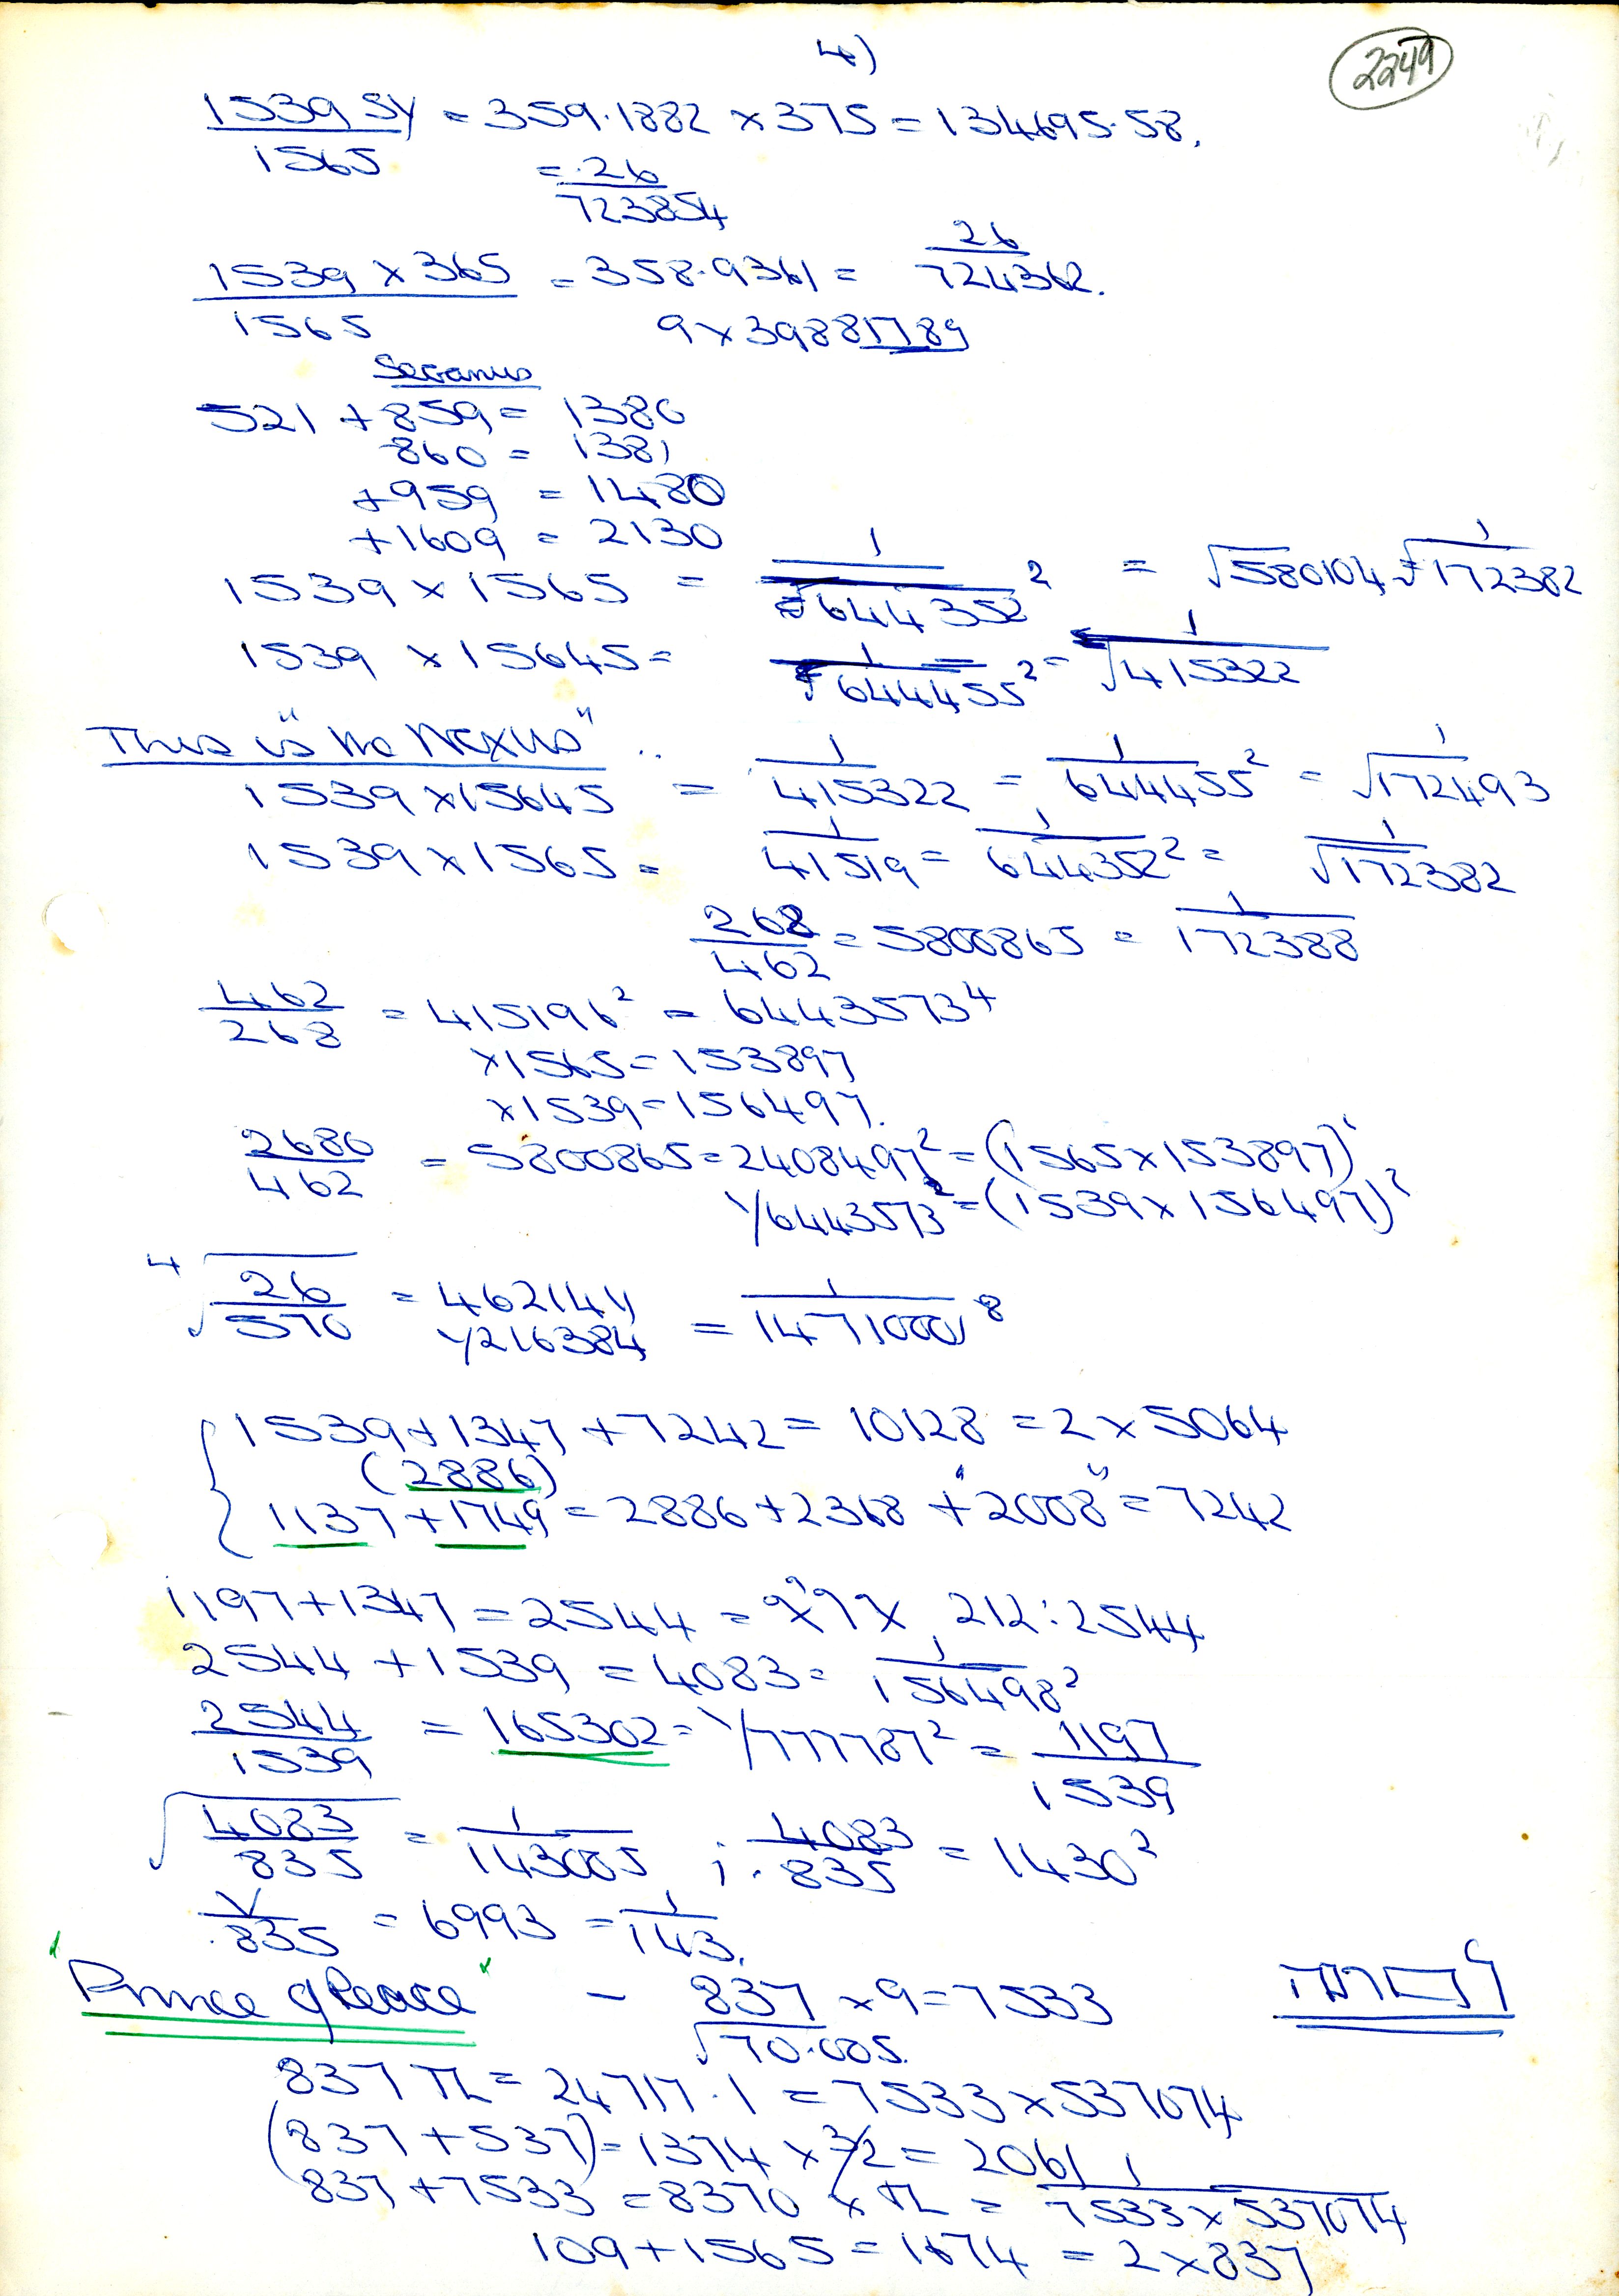 4)
2249
1539 SY / 1565 = 359.1882 × 375 = 134695.58.
= .26 / 723854
1539 × 365 / 1565 = 358.9361 = 26 / 724362.
9 × 39881789
521 + 859 = 1380
860 = 1381
+959 = 1480
+1609 = 2130
1539 × 1565 = 1/√644352² = √580104 = 1/√172382
1539 × 15645 = 1/√644455² = 1/√415322
This is "No Nexus" ..
1539 × 15645 = 1/415322 = 1/644455² = 1/√172493
1539 × 1565 = 1/41519 = 1/644352² = 1/√172382
268/462 = 5800865 = 1/172388
462/268 = 415196² = 6443573⁴
×1565 = 153897
×1539 = 156497.
2680/462 = 5800865 = 2408497² = (1565 × 153897)²
1/6443573² = (1539 × 156497)²
⁴√26/570 = 462144 = 1/14710001⁸
1/216384
1539 + 1347 + 7242 = 10128 = 2 × 5064
(2886)
1137 + 1749 = 2886 + 2368 + "2008" = 7242
1197 + 1347 = 2544 = 212 : 2544
2544 + 1539 = 4083 = 1/156498²
2544/1539 = 165302 = 1/777787² = 1197/1539
√4083/835 = 1/143005 ; 4083/.835 = 1430²
√/.835 = 6993 = 1/143.
"Prince of Peace" - 837/√70.005. × 9 = 7533
837 TL = 24717.1 = 7533 × 537074
(837 + 537) = 1374 × 3/2 = 2061
837 + 7533 = 8370 × TL = 1/7533 × 537074
109 + 1565 = 1674 = 2 × 837